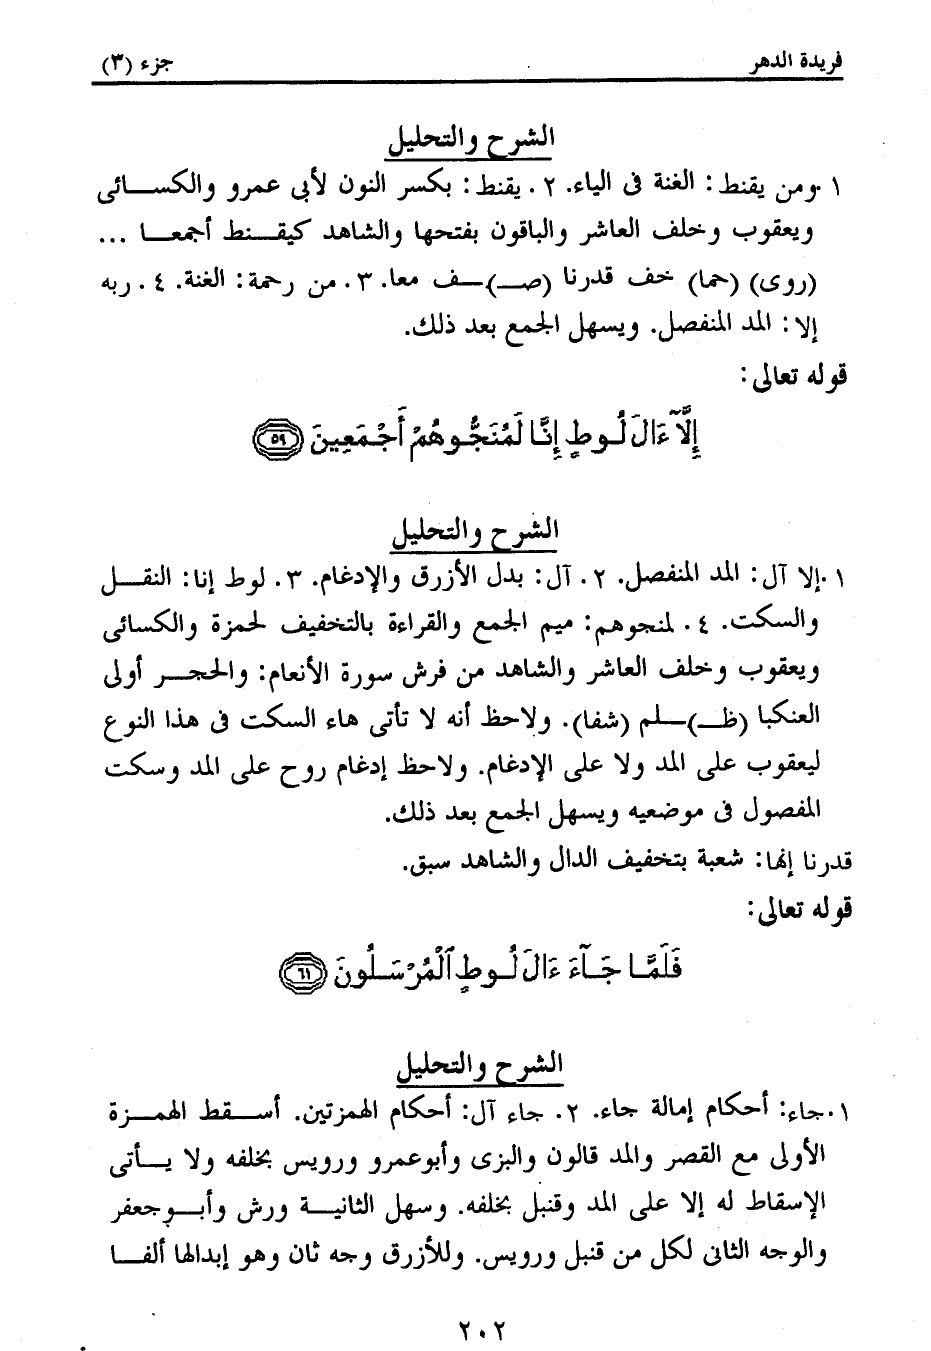 فريدة الدهر
جزء (٣)
الشرح والتحليل
١. ومن يقنط: الغنة فى الياء. ٢. يقنط: بكسر النون لأبى عمرو والكسائى
ويعقوب وخلف العاشر والباقون بفتحها والشاهد كيقنط أجمعا ...
(روى) (حما) خف قدرنا (صـ)ـف معا. ٣. من رحمة: الغنة. ٤. ربه
إلا: المد المنفصل. ويسهل الجمع بعد ذلك.
قوله تعالى:
إِلَّآ ءَالَ لُوطٍ إِنَّا لَمُنَجُّوهُمْ أَجْمَعِينَ ٥٩
الشرح والتحليل
١. إلا آل: المد المنفصل. ٢. آل: بدل الأزرق والإدغام. ٣. لوط إنا: النقل
والسكت. ٤. لمنجوهم: ميم الجمع والقراءة بالتخفيف لحمزة والكسائى
ويعقوب وخلف العاشر والشاهد من فرش سورة الأنعام: والحجر أولى
العنكبا (ظـ)ـلم (شفا). ولاحظ أنه لا تأتى هاء السكت فى هذا النوع
ليعقوب على المد ولا على الإدغام. ولاحظ إدغام روح على المد وسكت
المفصول فى موضعيه ويسهل الجمع بعد ذلك.
قدرنا إنها: شعبة بتخفيف الدال والشاهد سبق.
قوله تعالى:
فَلَمَّا جَآءَ ءَالَ لُوطٍ ٱلْمُرْسَلُونَ ٦١
الشرح والتحليل
١. جاء: أحكام إمالة جاء. ٢. جاء آل: أحكام الهمزتين. أسقط الهمزة
الأولى مع القصر والمد قالون والبزى وأبوعمرو ورويس بخلفه ولا يأتى
الإسقاط له إلا على المد وقنبل بخلفه. وسهل الثانية ورش وأبوجعفر
والوجه الثانى لكل من قنبل ورويس. وللأزرق وجه ثان وهو إبدالها ألفا
٢٠٢